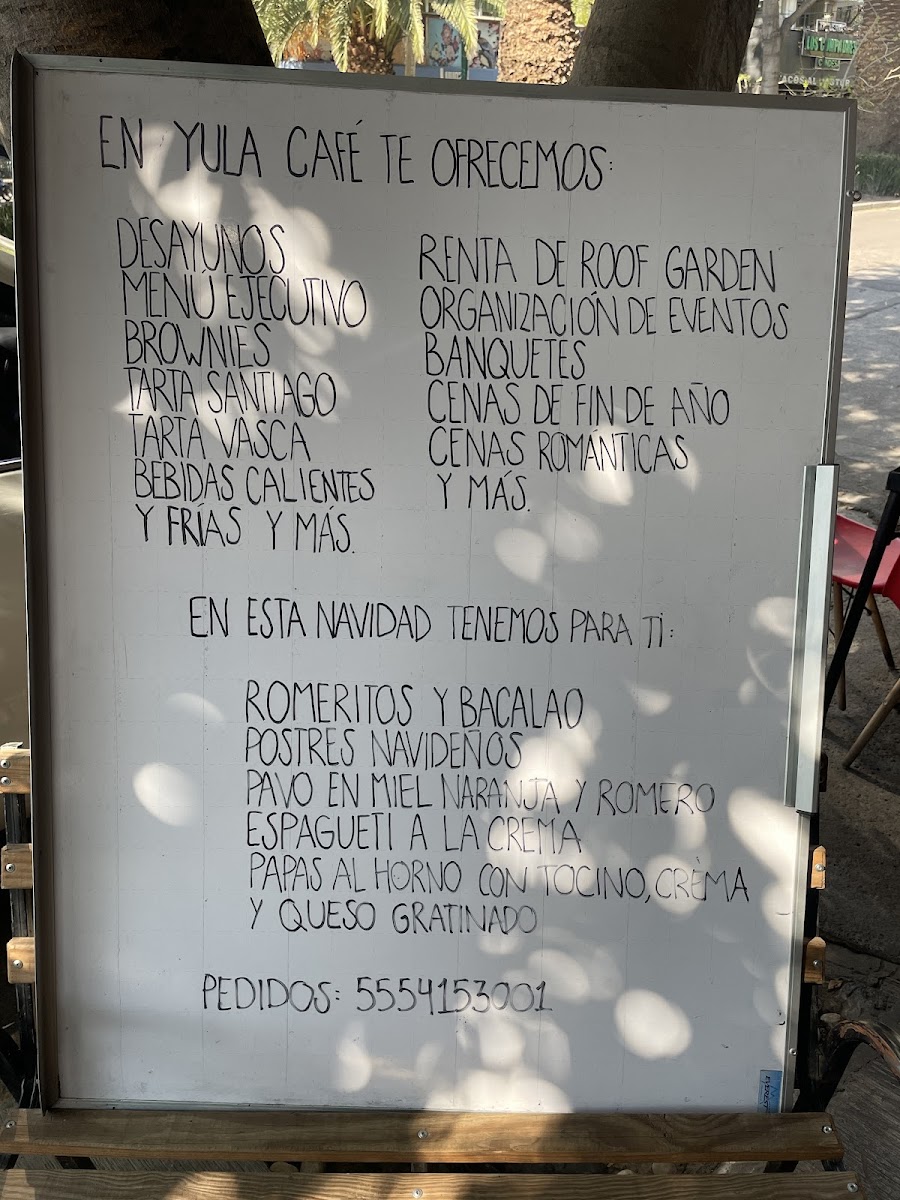 EN YULA CAFÉ TE OFRECEMOS:
DESAYUNOS
MENÚ EJECUTIVO
BROWNIES
TARTA SANTIAGO
TARTA VASCA
BEBIDAS CALIENTES
Y FRÍAS Y MÁS.
RENTA DE ROOF GARDEN
ORGANIZACIÓN DE EVENTOS
BANQUETES
CENAS DE FIN DE AÑO
CENAS ROMÁNTICAS
Y MÁS.
EN ESTA NAVIDAD TENEMOS PARA TI:
ROMERITOS Y BACALAO
POSTRES NAVIDEÑOS
PAVO EN MIEL NARANJA Y ROMERO
ESPAGUETI A LA CREMA
PAPAS AL HORNO CON TOCINO, CRÈMA
Y QUESO GRATINADO
PEDIDOS: 5554153001